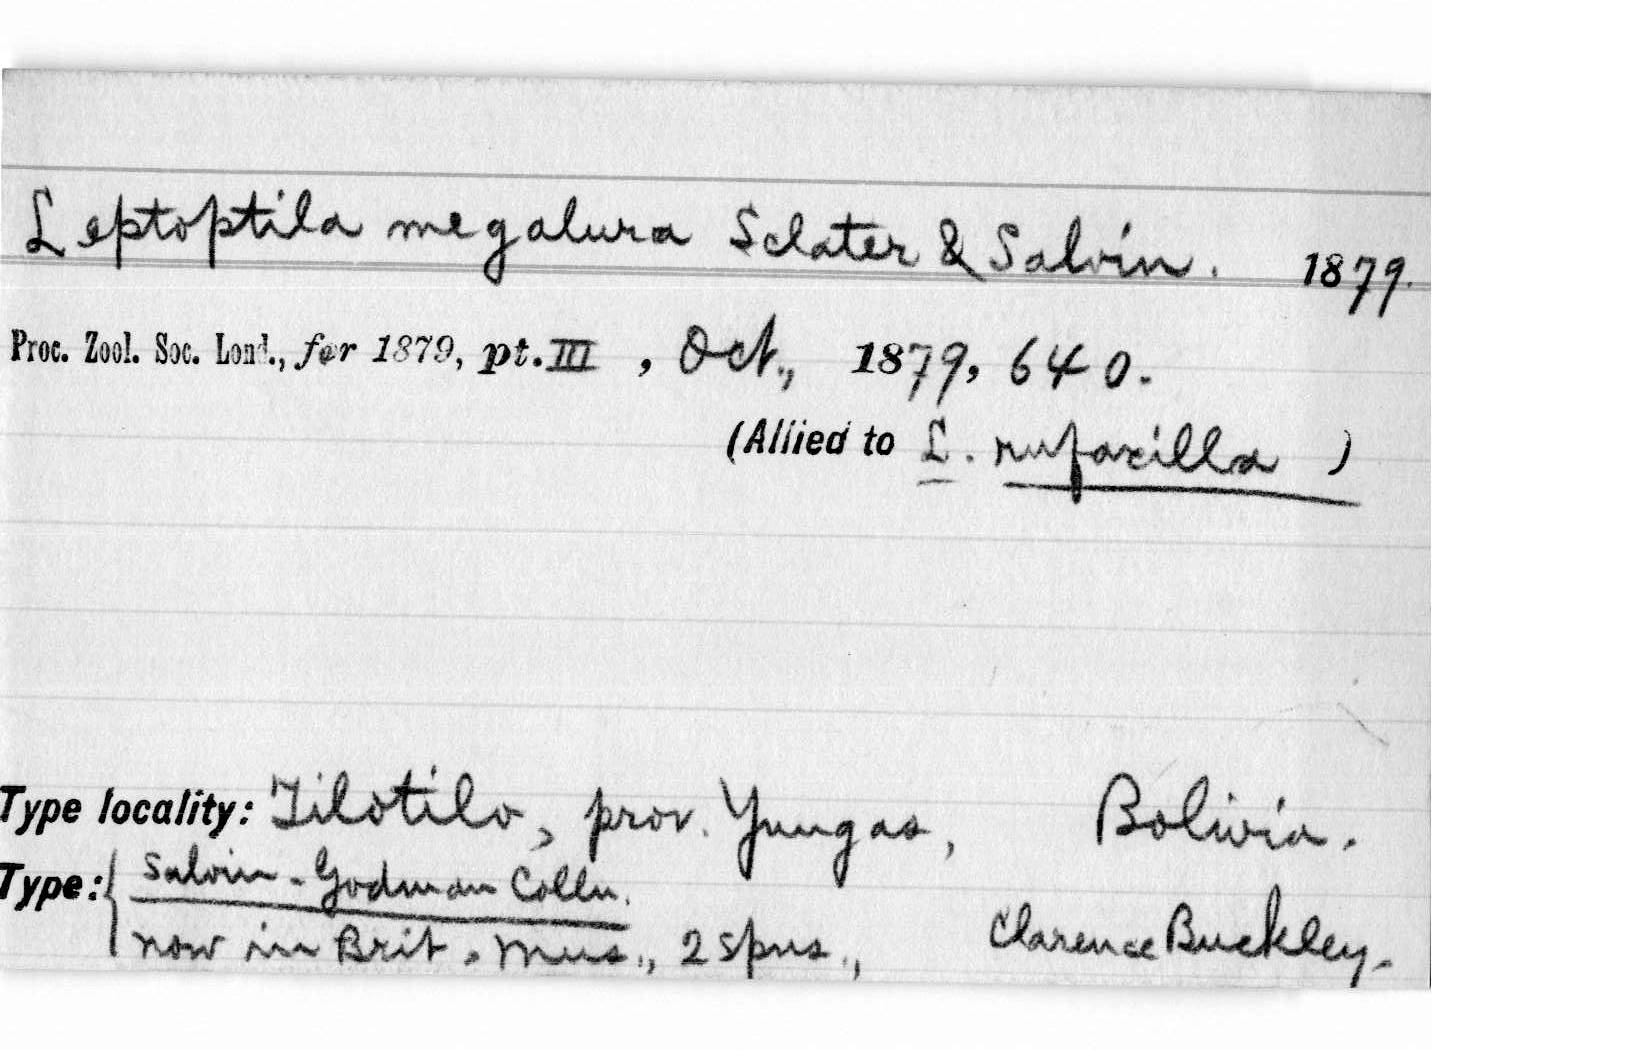 Leptoptila megalura Sclater & Salvin. 1879.
Proc. Zool. Soc. Lond., for 1879, pt. III , Oct., 1879, 640.
(Allied to L. rufaxilla )
Type locality: Tilotilo, prov. Yungas, Bolivia.
Type: { Salvin-Godman Colln.
now in Brit. Mus., 2 spns., Clarence Buckley.